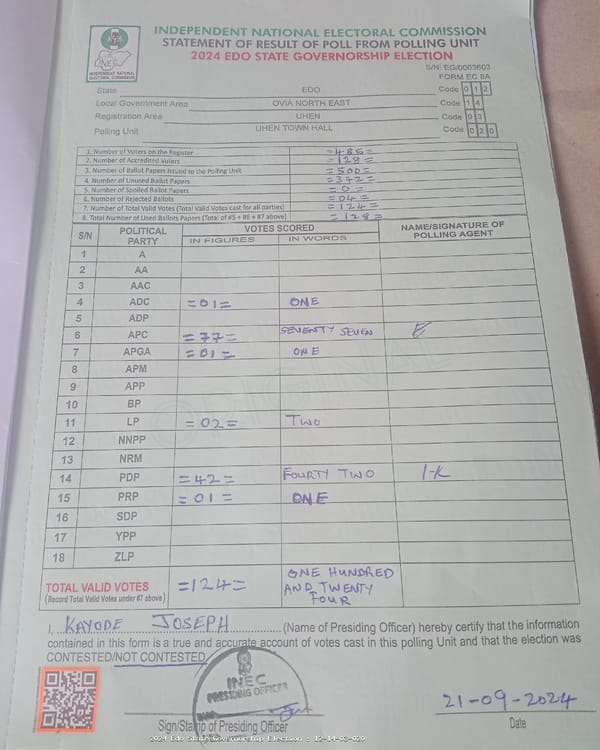 INDEPENDENT NATIONAL ELECTORAL COMMISSION
STATEMENT OF RESULT OF POLL FROM POLLING UNIT
2024 EDO STATE GOVERNORSHIP ELECTION
INEC
INDEPENDENT NATIONAL
ELECTORAL COMMISSION
S/N: EG/0003603
FORM EC 8A
State EDO Code 0 1 2
Local Government Area OVIA NORTH EAST Code 1 4
Registration Area UHEN Code 0 3
Polling Unit UHEN TOWN HALL Code 0 2 0
1. Number of Voters on the Register =485=
2. Number of Accredited Voters =128=
3. Number of Ballot Papers Issued to the Polling Unit =500=
4. Number of Unused Ballot Papers =372=
5. Number of Spoiled Ballot Papers =0=
6. Number of Rejected Ballots =04=
7. Number of Total Valid Votes (Total Valid Votes cast for all parties) =124=
8. Total Number of Used Ballots Papers (Total of #5 + #6 + #7 above) =128=
S/N POLITICAL PARTY VOTES SCORED NAME/SIGNATURE OF POLLING AGENT
IN FIGURES IN WORDS
1 A
2 AA
3 AAC
4 ADC =01= ONE
5 ADP
6 APC =77= SEVENTY SEVEN E
7 APGA =01= ONE
8 APM
9 APP
10 BP
11 LP =02= TWO
12 NNPP
13 NRM
14 PDP =42= FOURTY TWO I-K
15 PRP =01= ONE
16 SDP
17 YPP
18 ZLP
TOTAL VALID VOTES =124= ONE HUNDRED
(Record Total Valid Votes under #7 above) AND TWENTY
FOUR
I, KAYODE JOSEPH (Name of Presiding Officer) hereby certify that the information
contained in this form is a true and accurate account of votes cast in this polling Unit and that the election was
CONTESTED/NOT CONTESTED.
INEC
PRESIDING OFFICER
21-09-2024
Sign/Stamp of Presiding Officer Date
2024 Edo State Governorship Election : 12-14-03-020